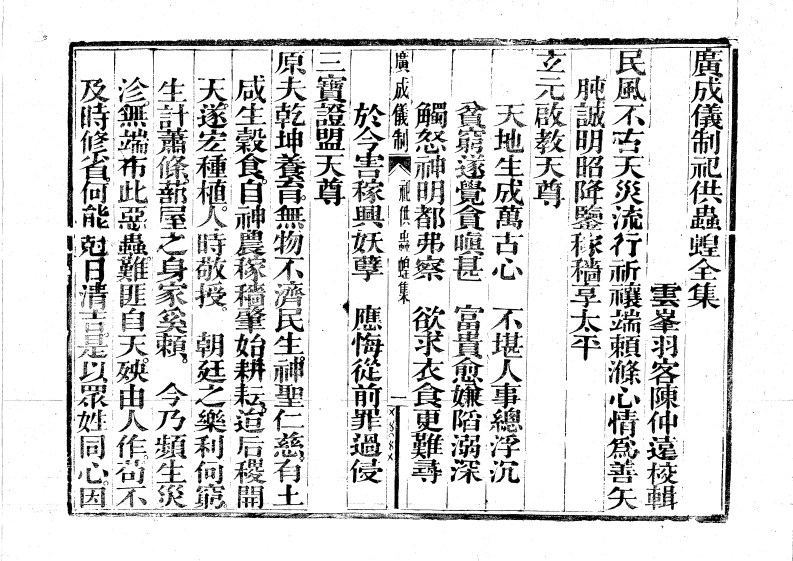 廣成儀制祀供蟲蝗全集
雲峯羽客陳仲遠校輯
民風不古天災流行祈禳端賴滌心情爲善矢
肫誠明昭降鑒稼穡享太平
玄元啟教天尊
天地生成萬古心　不堪人事總浮沉
貧窮遂覺貪嗔甚　富貴愈嫌陷溺深
觸怒神明都弗察　欲求衣食更難尋
廣成儀制　祀供虫蝗集　一
於今害稼興妖孽　應悔從前罪過侵
三寶證盟天尊
原夫乾坤養育。無物不濟民生。神聖仁慈。有土
咸生穀食。自神農稼穡肇始耕耘。迨后稷開
天。遂宏種植。人時敬授。　朝廷之樂利何窮。
生計蕭條。蔀屋之身家奚賴。　今乃頻生災
沴。無端布此惡蟲。難匪自天。殃由人作。苟不
及時修省。何能尅日清吉。是以眾姓同心。因